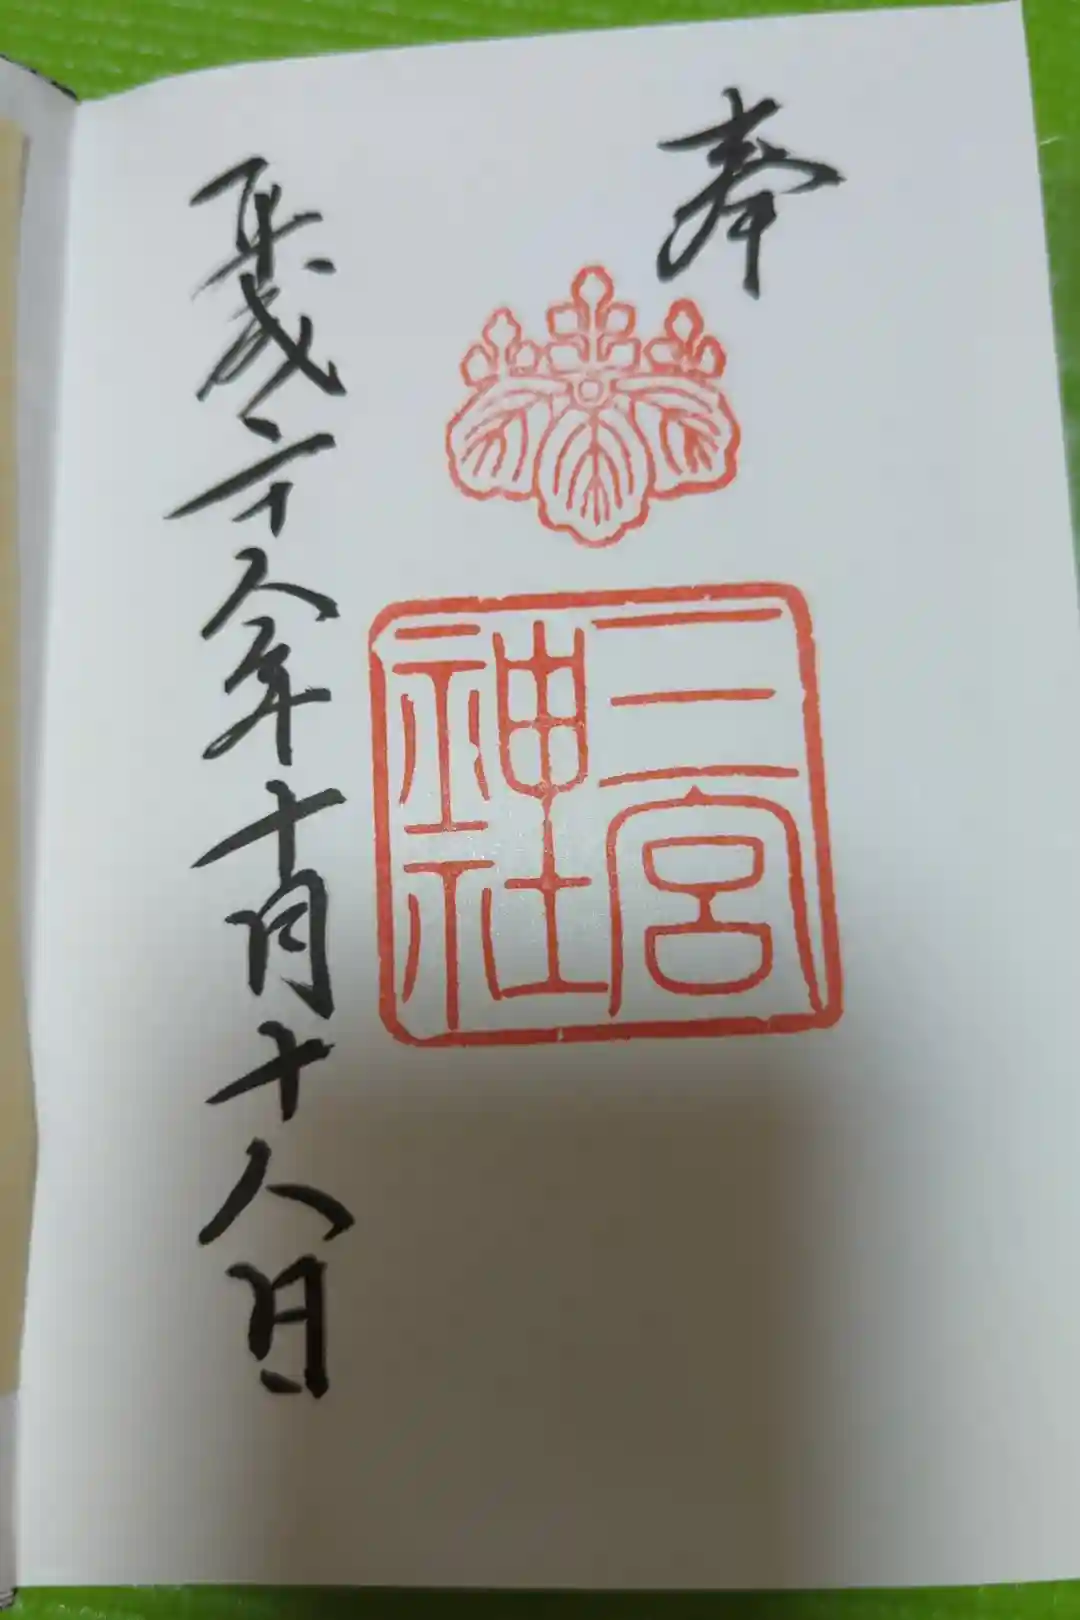 奉
三宮
神社
平成二十八年十月十八日